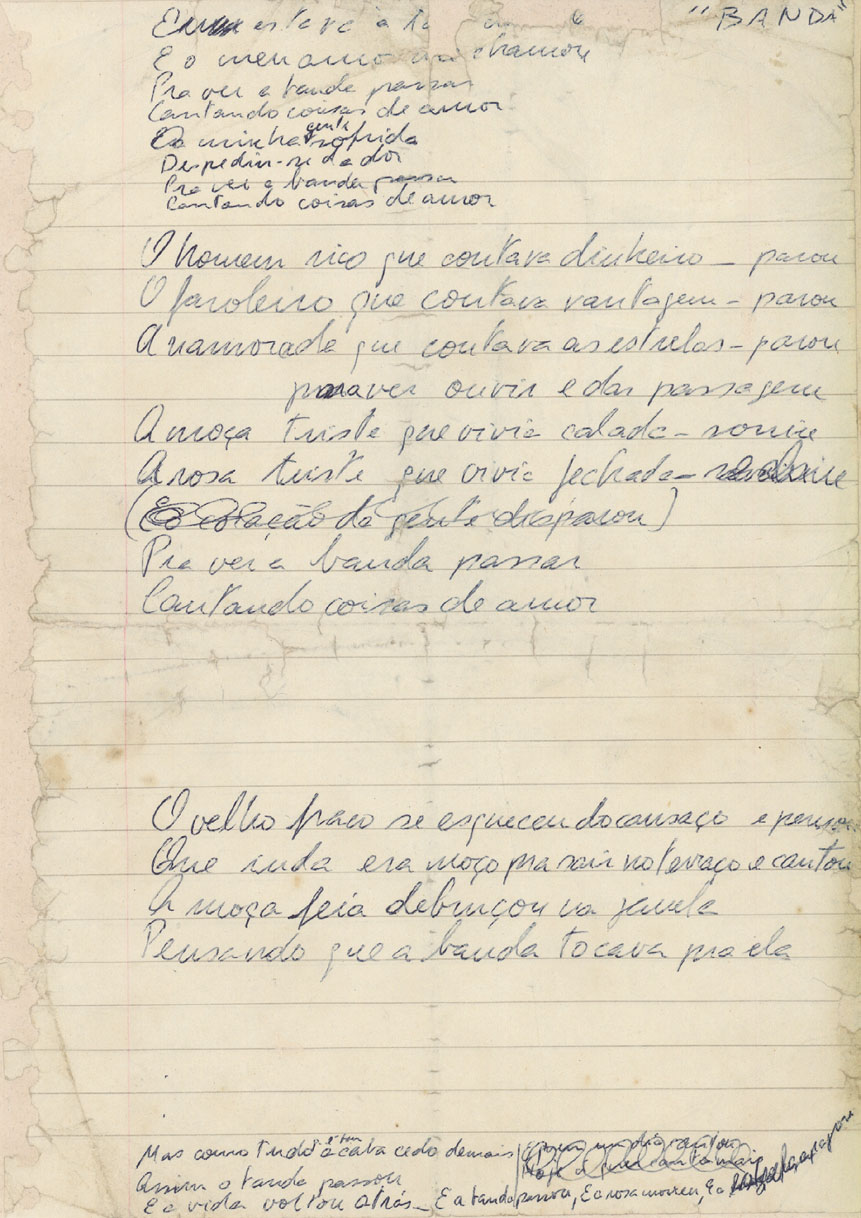 "BANDA"
estava à
E o meu amo me chamou
Pra ver a banda passar
Cantando coisas de amor
minha gente sofrida
Despediu-se da dor
Pra ver a banda passar
Cantando coisas de amor
O homem rico que contava dinheiro – parou
O faroleiro que contava vantagem – parou
A namorada que contava as estrelas – parou
pra ver ouvir e dar passagem
A moça triste que vivia calada – sorriu
A rosa triste que vivia fechada –
da gente disparou)
Pra ver a banda passar
Cantando coisas de amor
O velho fraco se esqueceu do cansaço e pensou
Que inda era moço pra sair no terraço e cantou
A moça feia debruçou na janela
Pensando que a banda tocava pra ela
Mas como tudo acaba cedo demais
Assim a banda passou
E a vida voltou atrás – E a banda passou, E a rosa morreu, E a